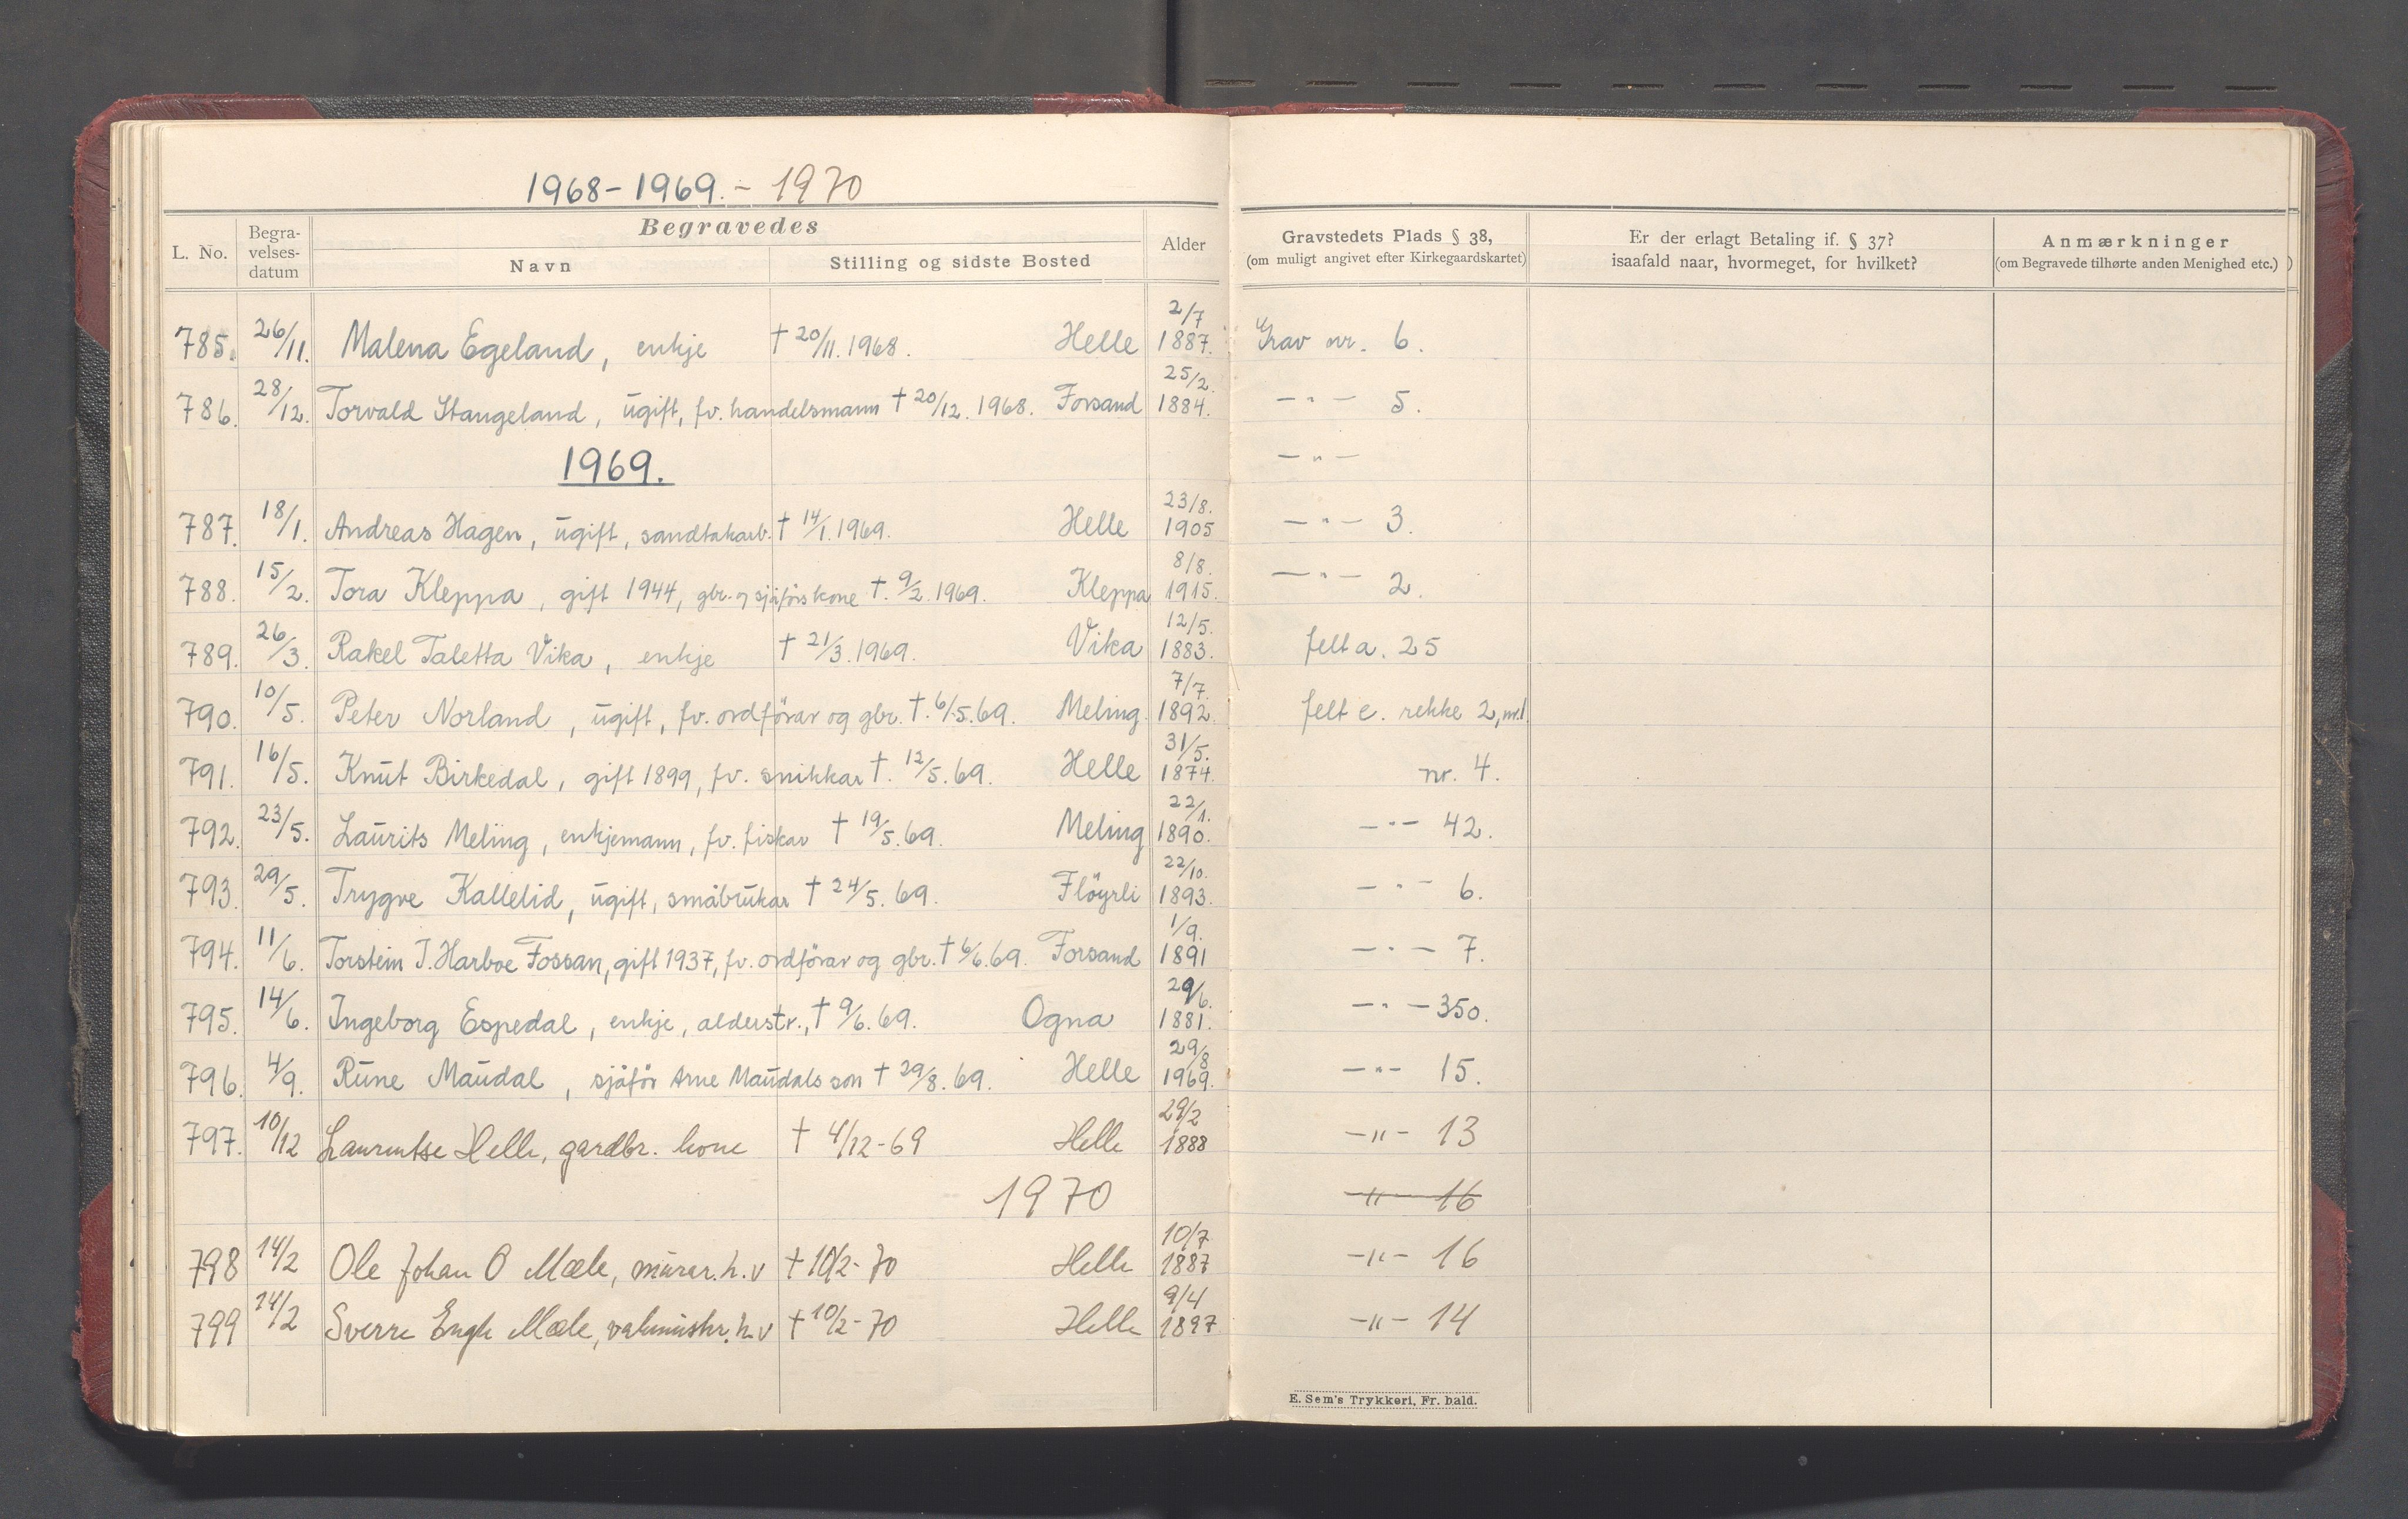 1968-1969.- 1970
L. No. Begravelses-datum Begravedes Alder Gravstedets Plads § 38, (om muligt angivet efter Kirkegaardskartet) Er der erlagt Betaling if. § 37? isaafald naar, hvormeget, for hvilket? Anmærkninger (om Begravede tilhørte anden Menighed etc.)
Navn Stilling og sidste Bosted
785. 26/11. Malena Egeland, enkje † 20/11.1968. Helle 2/7 1887. Grav nr. 6.
786. 28/12. Torvald Stangeland, ugift, fv. handelsmann † 20/12. 1968. Forsand 25/2. 1884. — " — 5.
1969. — " —
787. 18/1. Andreas Hagen, ugift, sandtakarb. † 14/1. 1969. Helle 23/8. 1905 — " — 3.
788. 15/2. Tora Kleppa, gift 1944, gbr. og sjåførs kone †. 9/2. 1969. Kleppa 8/8. 1915. — " — 2.
789. 26/3. Rakel Taletta Vika, enkje † 21/3. 1969. Vika 12/5. 1883. felt a. 25
790. 10/5. Peter Norland, ugift, fv. ordförar og gbr. †. 6/5.69. Meling. 7/7. 1892. felt e. rekke 2, nr.1
791. 16/5. Knut Birkedal, gift 1899, fv. snikkar †. 12/5.69. Helle 31/5. 1874. nr. 4.
792. 23/5. Laurits Meling, enkjemann, fv. fiskar † 19/5.69. Meling 22/1. 1890. — " — 42.
793. 29/5. Trygve Kallelid, ugift, småbrukar † 24/5. 69. Flöyrli 22/10. 1893. — " — 6.
794. 11/6. Torstein T. Harboe Fossan, gift 1937, fv. ordförar og gbr. † 6/6.69. Forsand 1/9. 1891 — " — 7.
795. 14/6. Ingeborg Espedal, enkje, alderstr., † 9/6.69. Ogna 29/6. 1881. — " — 350.
796. 4/9. Rune Maudal, sjåför Arne Maudals son † 29/8.69. Helle 29/8 1969. — " — 15.
797. 10/12 Laurentse Helle, gardbr. kone † 4/12-69 Helle 29/2 1888 — " — 13
1970 — " — 16
798 14/2 Ole Johan O Mæle, murar. h. v † 10/2-70 Helle 10/7 1887 — " — 16
799 14/2 Sverre Mæle, h. v † 10/2-70 Helle 9/4 1897 — " — 14
E. Sem's Trykkeri, Fr. hald.